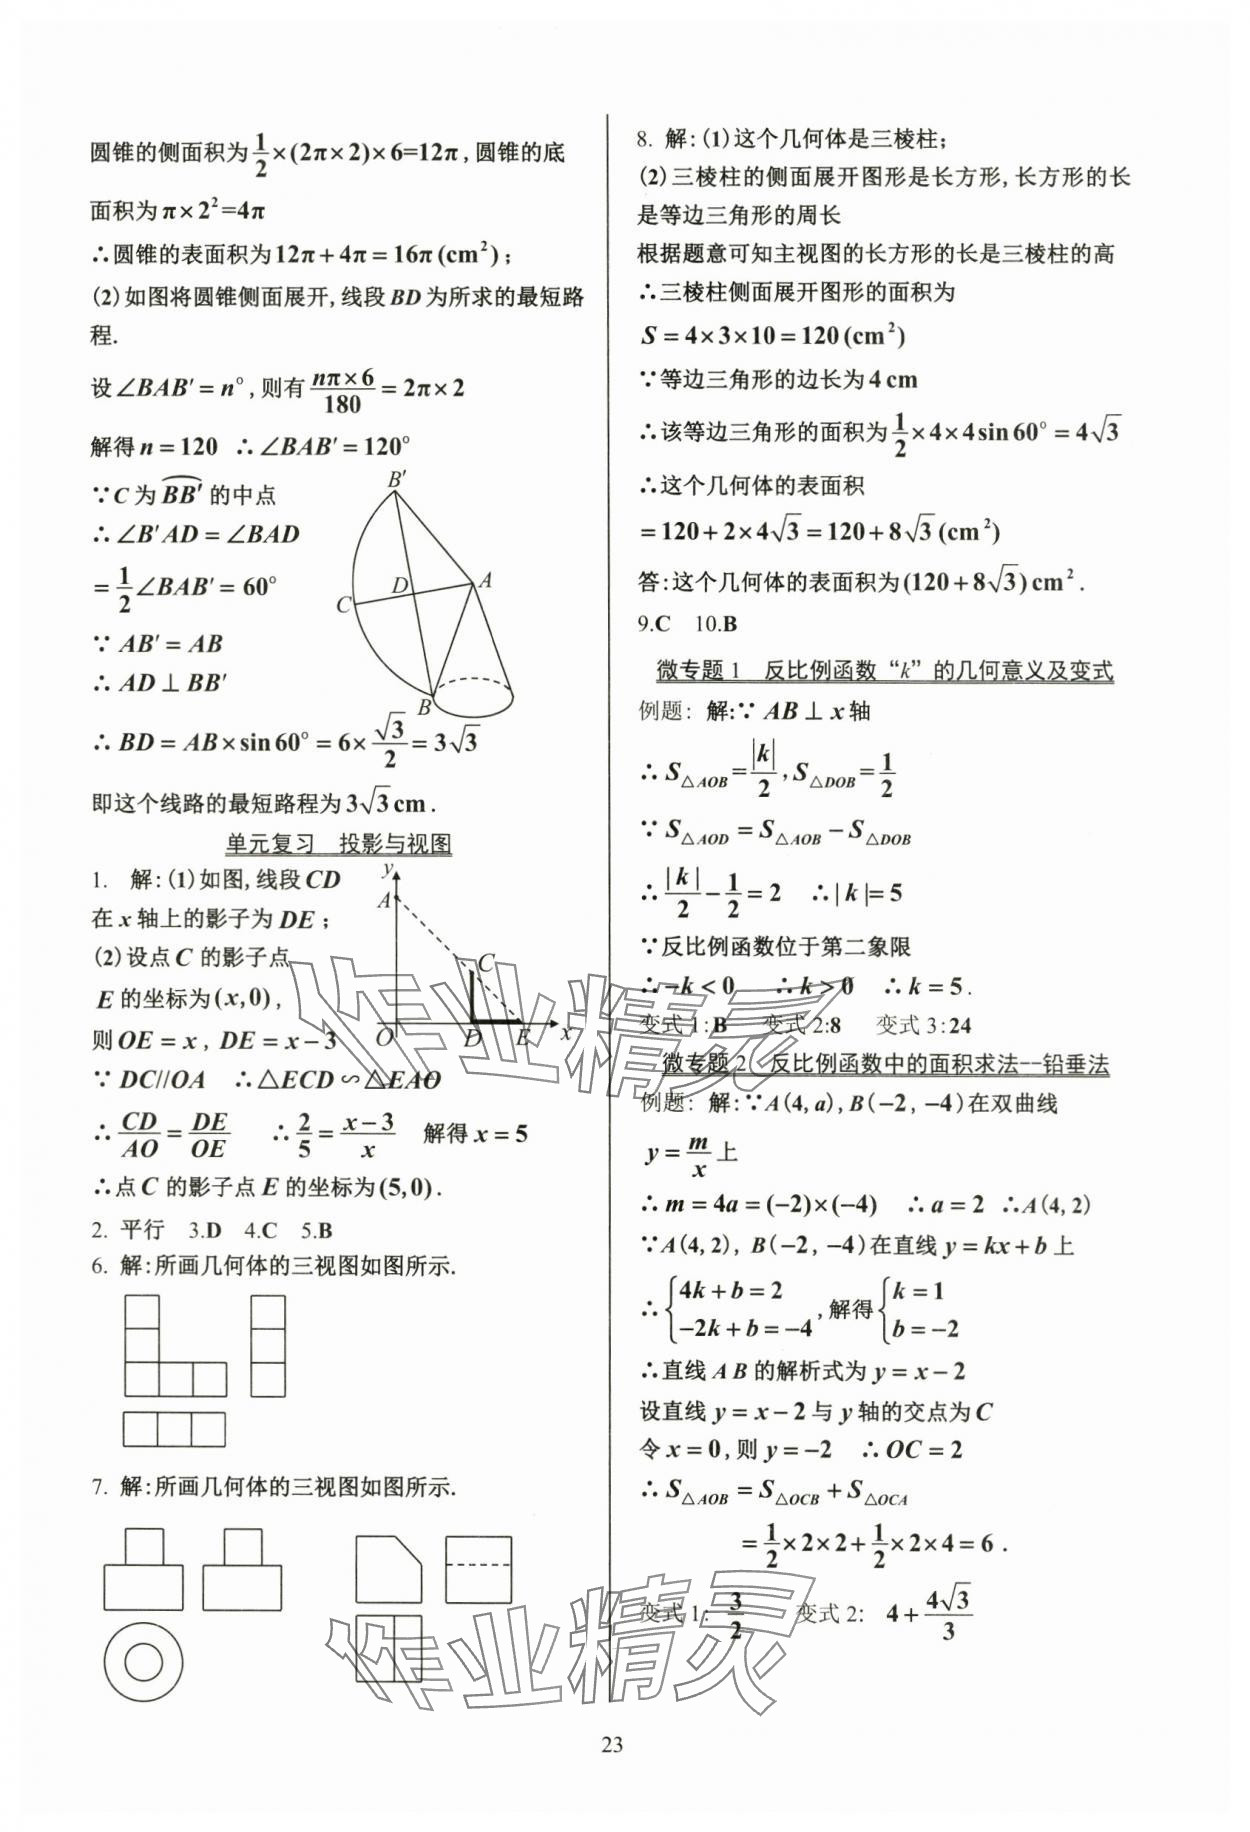 圆锥的侧面积为 1/2×(2π×2)×6=12π,圆锥的底
面积为 π×2²=4π
∴圆锥的表面积为 12π+4π=16π(cm²);
(2)如图将圆锥侧面展开,线段 BD 为所求的最短路
程.
设∠BAB′=n°,则有 nπ×6/180=2π×2
解得 n=120 ∴∠BAB′=120°
∵C 为 BB′ 的中点
∴∠B′AD=∠BAD
=1/2∠BAB′=60°
∵ AB′=AB
∴ AD⊥BB′
B′
D
A
C
B
∴ BD=AB×sin60°=6×√3/2=3√3
即这个线路的最短路程为 3√3cm.
单元复习 投影与视图
1. 解:(1)如图,线段 CD
在 x 轴上的影子为 DE;
(2)设点 C 的影子点
E 的坐标为(x,0),
则 OE=x, DE=x-3
∵ DC//OA ∴△ECD∽△EAO
y
A
C
O
D
E
x
∴CD/AO=DE/OE ∴2/5=x-3/x 解得 x=5
∴点 C 的影子点 E 的坐标为(5,0).
2. 平行 3.D 4.C 5.B
6. 解:所画几何体的三视图如图所示.
7. 解:所画几何体的三视图如图所示.
8. 解:(1)这个几何体是三棱柱;
(2)三棱柱的侧面展开图形是长方形,长方形的长
是等边三角形的周长
根据题意可知主视图的长方形的长是三棱柱的高
∴三棱柱侧面展开图形的面积为
S=4×3×10=120(cm²)
∵等边三角形的边长为 4cm
∴该等边三角形的面积为 1/2×4×4sin60°=4√3
∴这个几何体的表面积
=120+2×4√3=120+8√3(cm²)
答:这个几何体的表面积为(120+8√3)cm².
9.C 10.B
微专题 1 反比例函数“k”的几何意义及变式
例题: 解:∵ AB⊥x 轴
∴ S△AOB=|k|/2,S△DOB=1/2
∵ S△AOD=S△AOB-S△DOB
∴|k|/2-1/2=2 ∴|k|=5
∵反比例函数位于第二象限
∴-k<0 ∴k>0 ∴k=5.
变式 1:B 变式 2:8 变式 3:24
微专题 2 反比例函数中的面积求法--铅垂法
例题: 解:∵A(4,a),B(-2,-4)在双曲线
y=m/x上
∴m=4a=(-2)×(-4) ∴a=2 ∴A(4,2)
∵A(4,2), B(-2,-4)在直线 y=kx+b 上
∴{4k+b=2 -2k+b=-4,解得{k=1 b=-2
∴直线 AB 的解析式为 y=x-2
设直线 y=x-2 与 y 轴的交点为 C
令 x=0,则 y=-2 ∴OC=2
∴S△AOB=S△OCB+S△OCA
=1/2×2×2+1/2×2×4=6.
变式 1: 3/2 变式 2: 4+4√3/3
作业精灵
作业精灵
23